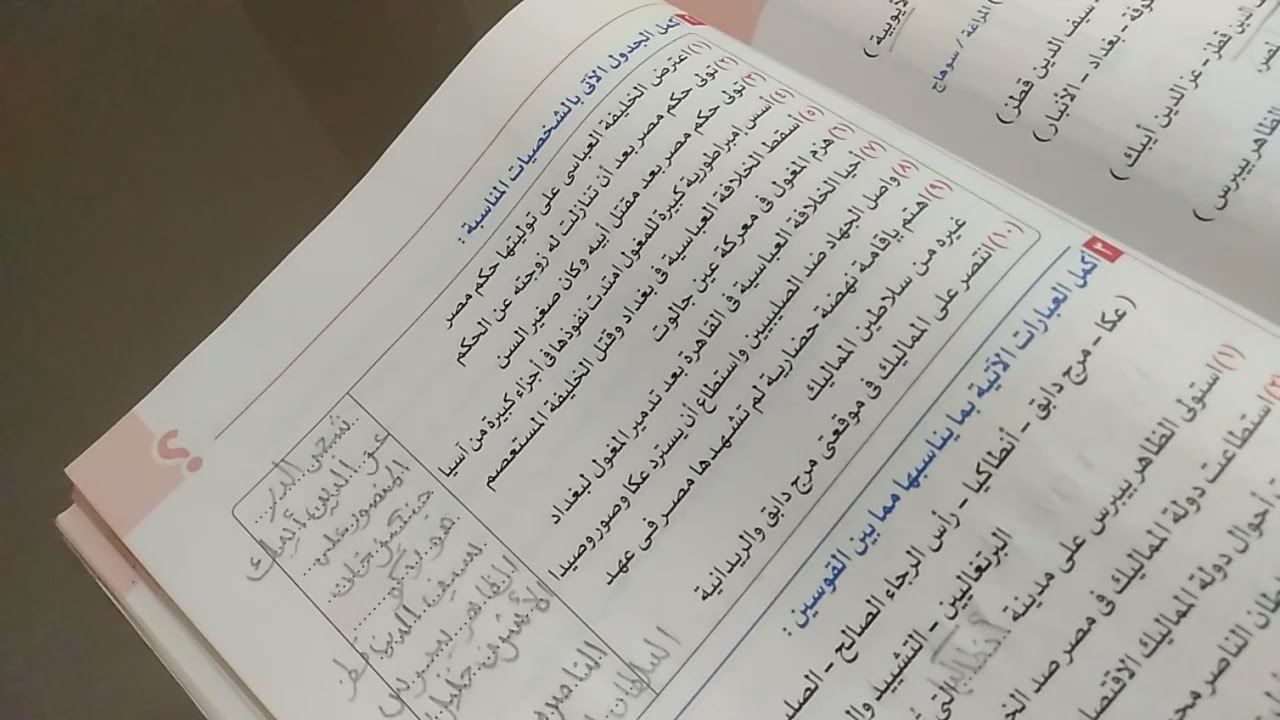 أكمل الجدول الآتى بالشخصيات المناسبة :
(١) اعترض الخليفة العباسى على توليتها حكم مصر
شجر الدر
(٢) تولى حكم مصر بعد أن تنازلت له زوجته عن الحكم
عز الدين أيبك
(٣) تولى حكم مصر بعد مقتل أبيه وكان صغير السن
المنصور على
(٤) أسس إمبراطورية كبيرة للمغول امتدت نفوذها فى أجزاء كبيرة من آسيا
جنكيز خان
(٥) أسقط الخلافة العباسية فى بغداد وقتل الخليفة المستعصم
هولاكو
(٦) هزم المغول فى معركة عين جالوت
سيف الدين قطز
(٧) أحيا الخلافة العباسية فى القاهرة بعد تدمير المغول لبغداد
الظاهر بيبرس
(٨) واصل الجهاد ضد الصليبيين واستطاع أن يسترد عكا وصور وصيدا
الأشرف خليل
(٩) اهتم بإقامة نهضة حضارية لم تشهدها مصر فى عهد
غيره من سلاطين المماليك
الناصر
(١٠) انتصر على المماليك فى موقعتى مرج دابق والريدانية
السلطان
٣ أكمل العبارات الآتية بما يناسبها مما بين القوسين :
(عكا - مرج دابق - أنطاكيا - رأس الرجاء الصالح -
البرتغاليين - التشييد
(١) استولى الظاهر بيبرس على مدينة أنطاكيا
(٢) استطاعت دولة المماليك فى مصر صد
أحوال دولة المماليك
الناصر
الأيوبية )
(المراغة / سوهاج
سيف الدين قطز )
بغداد - الأنبار )
الدين قطز - عز الدين أيبك )
الظاهر بيبرس )